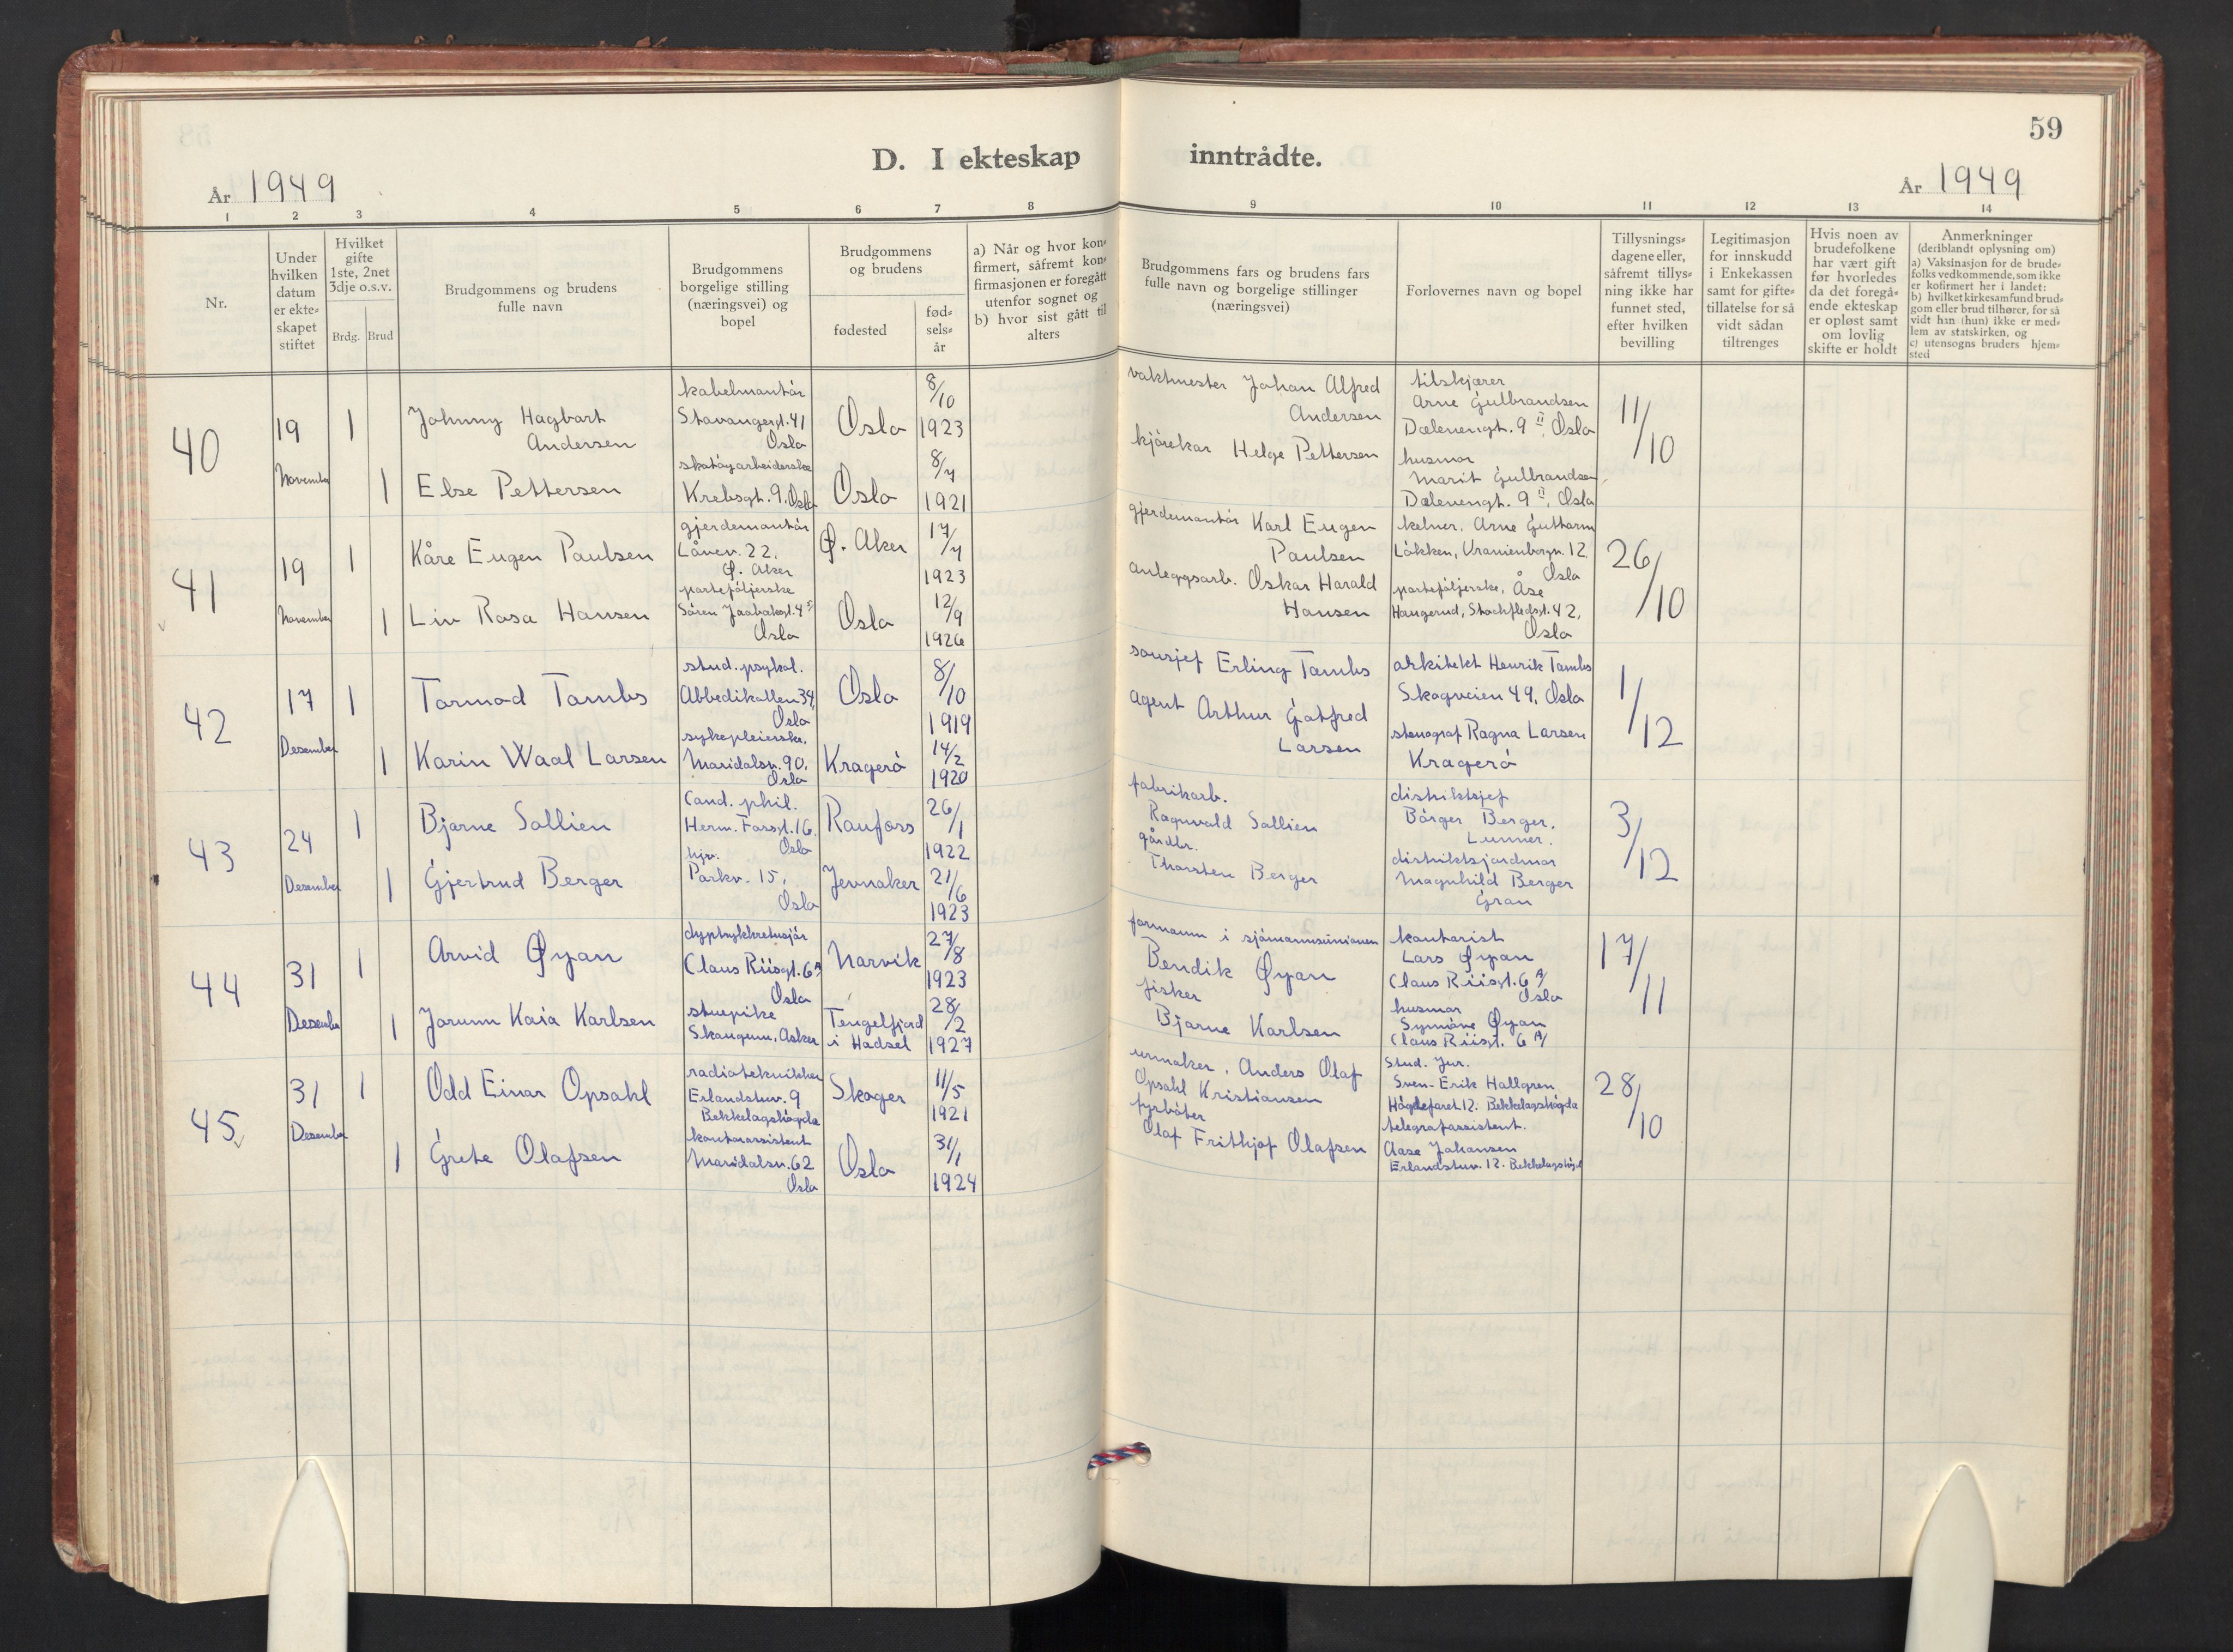 59
D. I ekteskap inntrådte.
År 1949
År 1949
1 2 3 4 5 6 7 8 9 10 11 12 13 14
Nr.
Under
hvilken
datum
er ekte-
skapet
stiftet
Hvilket
gifte
1ste, 2net
3dje o.s.v.
Brdg. Brud
Brudgommens og brudens
fulle navn
Brudgommens
borgelige stilling
(næringsvei) og
bopel
Brudgommens
og brudens
fødested
fød-
sels-
år
a) Når og hvor kon-
firmert, såfremt kon-
firmasjonen er foregått
utenfor sognet og
b) hvor sist gått til
alters
Brudgommens fars og brudens fars
fulle navn og borgelige stillinger
(næringsvei)
Forlovernes navn og bopel
Tillysnings-
dagene eller,
såfremt tillys-
ning ikke har
funnet sted,
efter hvilken
bevilling
Legitimasjon
for innskudd
i Enkekassen
samt for gifte-
tillatelse for så
vidt sådan
tiltrenges
Hvis noen av
brudefolkene
har vært gift
før hvorledes
da det foregå-
ende ekteskap
er opløst samt
om lovlig
skifte er holdt
Anmerkninger
(deriblandt oplysning om)
a) Vaksinasjon for de brude-
folks vedkommende, som ikke
er kofirmert her i landet:
b) hvilket kirkesamfund brud-
gom eller brud tilhører, for så
vidt han (hun) ikke er med-
lem av statskirken, og
c) utensogns bruders hjem-
sted
40
19
November
1
Johnny Hagbart
Andersen
kabelmontör
Stavangergt. 41
Oslo
Oslo
8/10
1923
vaktmester Johan Alfred
Andersen
tilskjærer
Arne Gulbrandsen
Dælenengt. 9 II, Oslo
11/10
1
Else Pettersen
skotöyarbeiderske
Krebsgt. 9, Oslo
Oslo
8/7
1921
kjörekar Helge Pettersen
husmor
Marit Gulbrandsen
Dælenengt. 9 II, Oslo
41
19
November
1
Kåre Eugen Paulsen
gjerdemontör
Lånev. 22,
Ø. Aker
Ø. Aker
17/7
1923
gjerdemontör Karl Eugen
Paulsen
kelner, Arne Guttorm
Lökken, Uranienborgv. 12,
Oslo
26/10
1
Liv Rosa Hansen
porteföljerske
Sören Jaabeksgt. 4
Oslo
Oslo
12/9
1926
anleggsarb. Oskar Harald
Hansen
porteföljerske, Åse
Haugerud, Stockfledsgt. 42,
Oslo
42
17
Desember
1
Tormod Tambs
stud. psykol.
Abbedikollen 34,
Oslo
Oslo
8/10
1919
Erling Tambs
arkitekt Henrik Tambs
Skogveien 49, Oslo
1/12
1
Karin Waal Larsen
sykepleierske,
Maridalsv. 90,
Oslo
Kragerö
14/2
1920
agent Arthur Gotfred
Larsen
stenograf Ragna Larsen
Kragerö
43
24
Desember
1
Bjarne Sollien
Cand. phil.
Herm. Fossgt. 16,
Oslo
Raufoss
26/1
1922
fabrikarb.
Ragnvald Sollien
distriktsjef
Börger Berger,
Lunner.
3/12
1
Gjertrud Berger
hjv.
Parkv. 15,
Oslo
Jevnaker
21/6
1923
gårdbr.
Thorsten Berger
distriktsjordmor
Magnhild Berger
Gran
44
31
Desember
1
Arvid Øyan
dyptrykkretusjör
Claus Riisgt. 6 A
Oslo
Narvik
27/8
1923
formann i sjömannsunionen
Bendik Øyan
kontorist
Lars Øyan
Claus Riisgt. 6 A/
Oslo
17/11
1
Jorunn Kaia Karlsen
stuepike
Skaugum, Asker
Tengelfjord
i Hadsel
28/2
1927
fisker
Bjarne Karlsen
husmor
Synnöve Øyan
Claus Riisgt. 6 A/
45
31
Desember
1
Odd Einar Opsahl
radiotekniker
Erlandstuv. 9
Bekkelagshögda
Skoger
11/5
1921
urmaker, Anders Olaf
Opsahl Kristiansen
Stud. Jur.
Sven-Erik Hallgren
Högdefaret 12. Bekkelagshögda
28/10
1
Grete Olafsen
kontorassistent
Maridalsv. 62
Oslo
Oslo
31/1
1924
fyrböter
Olaf Frithjof Olafsen
telegrafassistent.
Aase Johansen
Erlandstuv. 12. Bekkelagshögd